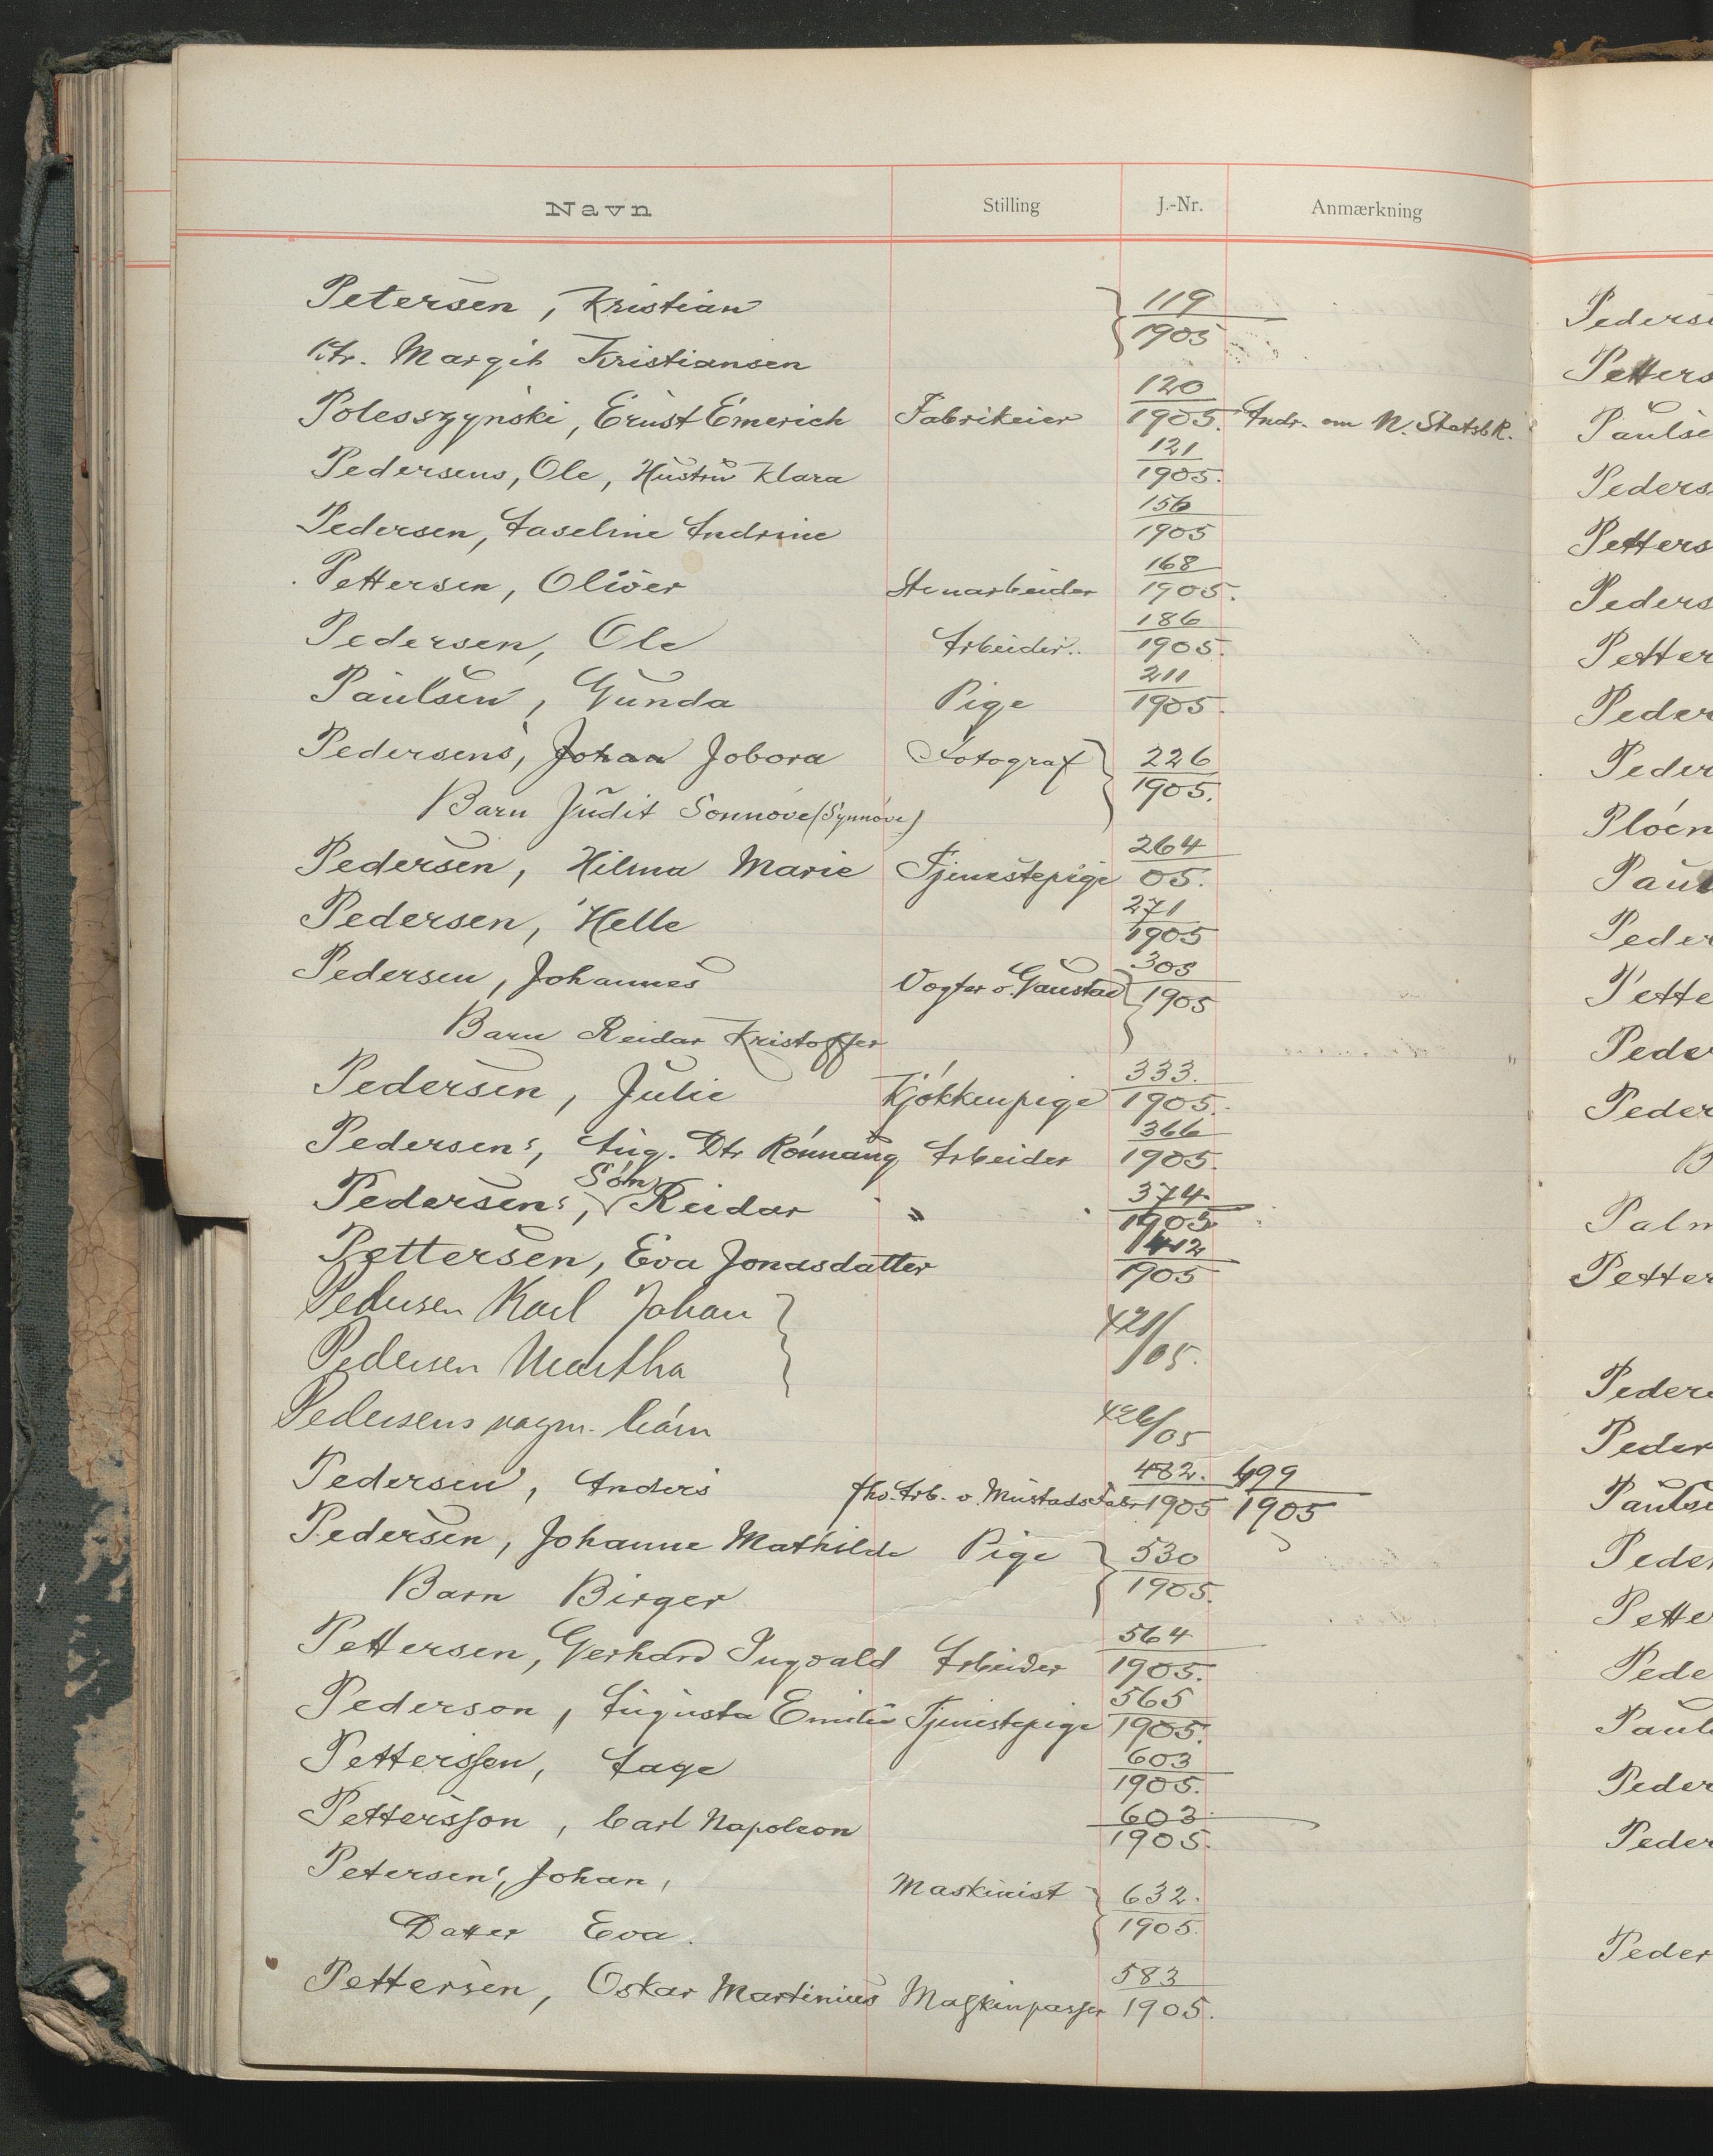 Navn Stilling J.-Nr. Anmærkning
Petersen, Kristian 119/1905
Margit Kristiansen
Polesszynski, Ernst Emerich Fabrikeier 120/1905. Andr. om N. Statsb.R.
Pedersens, Ole, Hustru Klara 121/1905.
Pedersen, Aaseline Andrine 156/1905
Pettersen, Oliver Stenarbeider 168/1905.
Pedersen, Ole Arbeider. 186/1905.
Paulsen, Gunda Pige 211/1905.
Pedersens, Johan Jobora Fotograf 226/1905.
Barn Judit Sonnøve (Synnøve)
Pedersen, Hilma Marie Tjenestepige 264/05.
Pedersen, Helle 271/1905
Pedersen, Johannes Vogter v. Gaustad 303/1905
Barn Reidar Kristoffer
Pedersen, Julie Kjøkkenpige 333./1905.
Pedersens, Aug. Dtr Rønnaug Arbeider 366/1905.
Søn
Pedersens, Reidar " 374/1905
Pettersen, Eva Jonasdatter 412/1905
Pedersen Karl Johan 421/05.
Pedersen Martha
Pedersens barn 426/05
Pedersen, Anders fhv. Arb. v. Mustads Fabr. 482./1905 499/1905
Pedersen, Johanne Mathilde Pige 530/1905.
Barn Birger
Pettersen, Gerhard Ingvald Arbeider 564/1905.
Pederson, Augusta Emilie Tjenestepige 565/1905.
Petterssen, Aage 603/1905.
Pettersson, Carl Napoleon 603/1905.
Petersen's, Johan, Maskinist 632./1905.
Datter Eva.
Pettersen, Oskar Martinius Maskinpasser 583/1905.
Petters
Paulse
Peders
Petters
Peders
Petter
Peder
Peder
Ploen
Peder
Pette
Peder
Peder
B
Palm
Petter
Peder
Peder
Pauls
Peder
Pette
Pede
Paul
Peder
Peder
Peder